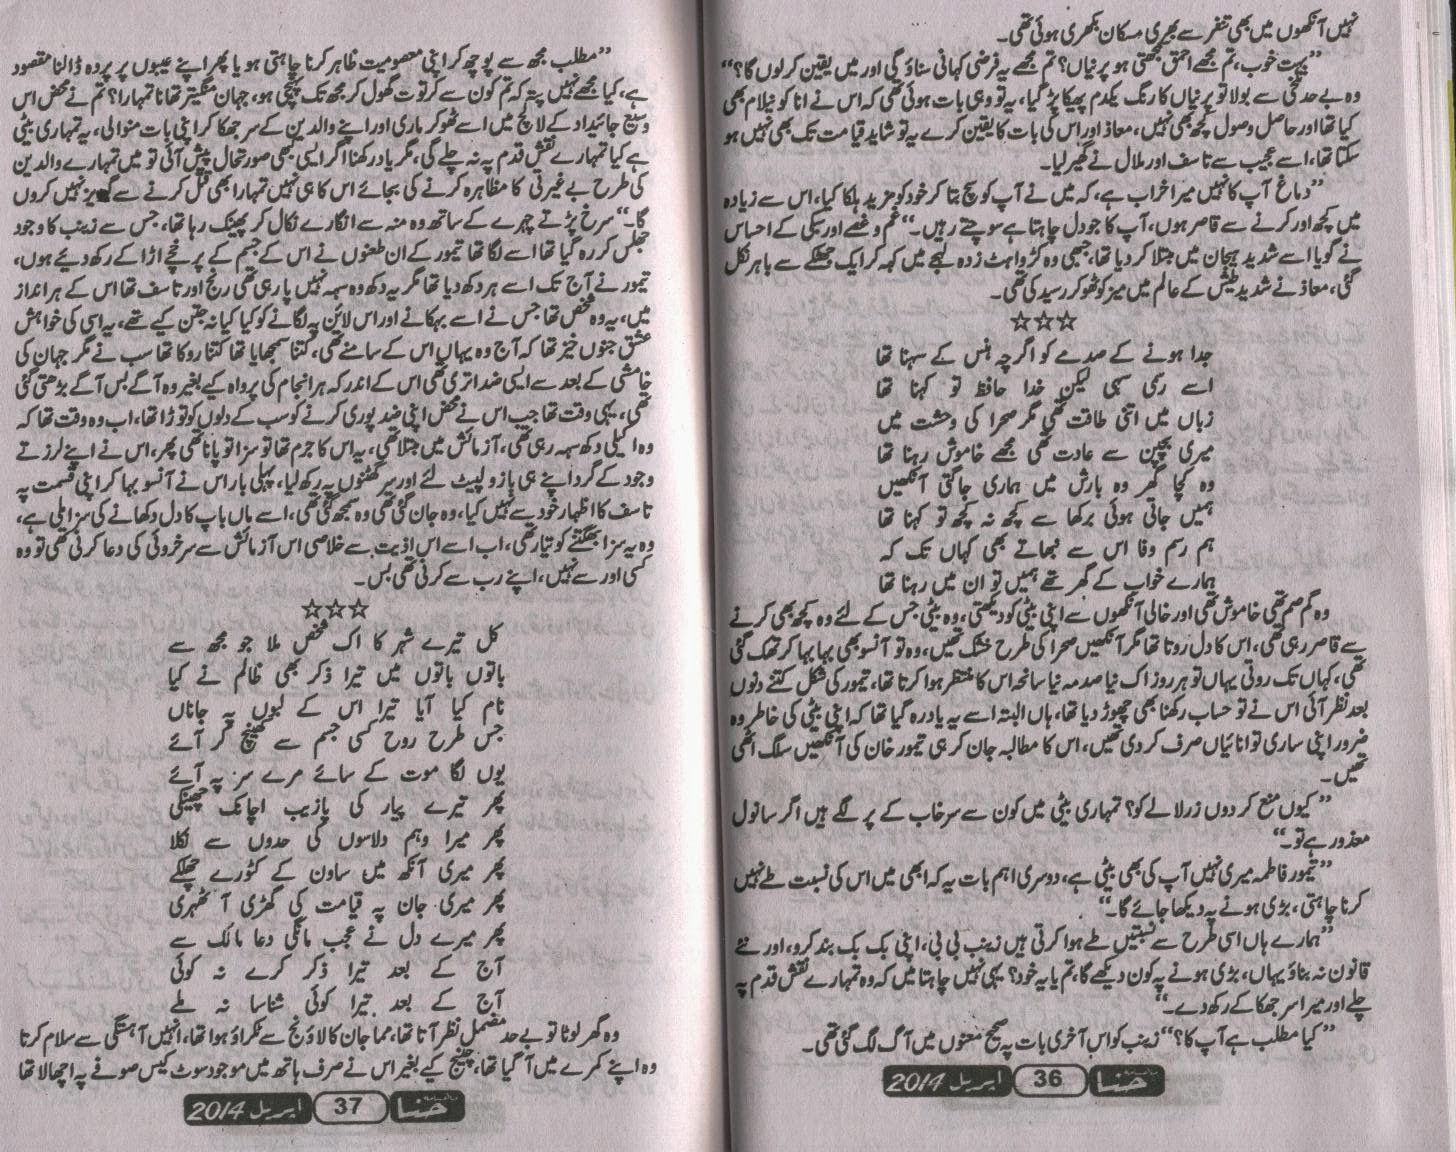 نہیں آنکھوں میں بھی تنفر سے بھری مسکان بکھری ہوئی تھی۔
”بہت خوب، تم مجھے احمق سمجھتی ہو پرنیاں؟ تم مجھے یہ فرضی کہانی سناؤ گی اور میں یقین کر لوں گا؟“
وہ بے حد تلخی سے بولا تو پرنیاں کا رنگ یکدم پھیکا پڑ گیا، یہ تو وہی بات ہوئی تھی کہ اس نے انا کو نیلام بھی
کیا تھا اور حاصل وصول کچھ بھی نہیں، معاذ اور اس کی بات کا یقین کرے یہ تو شاید قیامت تک بھی نہیں ہو
سکتا تھا، اسے عجیب سے تاسف اور ملال نے گھیر لیا۔
”دماغ آپ کا نہیں میرا خراب ہے، کہ میں نے آپ کو سچ بتا کر خود کو مزید ہلکا کیا، اس سے زیادہ
میں کچھ اور کرنے سے قاصر ہوں، آپ کا جو دل چاہتا ہے سوچتے رہیں۔“ غم و غصے اور سبکی کے احساس
نے گویا اسے شدید ہیجان میں مبتلا کر دیا تھا، جبھی وہ کڑواہٹ زدہ لہجے میں کہہ کر ایک جھٹکے سے باہر نکل
گئی، معاذ نے شدید طیش کے عالم میں میز کو ٹھوکر رسید کی تھی۔
☆☆☆
جدا ہونے کے صدمے کو اگرچہ ہنس کے سہنا تھا
اسے رسمی سہی لیکن خدا حافظ تو کہنا تھا
زباں میں اتنی طاقت تھی مگر صحرا کی وحشت میں
میری بچپن سے عادت تھی مجھے خاموش رہنا تھا
وہ کچا گھر وہ بارش میں ہماری جاگتی آنکھیں
ہمیں جاتی ہوئی برکھا سے کچھ نہ کچھ تو کہنا تھا
ہم رسم وفا اس سے نبھاتے بھی کہاں تک کہ
ہمارے خواب کے گھر تھے ہمیں تو ان میں رہنا تھا
وہ گم صم تھی خاموش تھی اور خالی آنکھوں سے اپنی بیٹی کو دیکھتی، وہ بیٹی جس کے لئے وہ کچھ بھی کرنے
سے قاصر رہی تھی، اس کا دل روتا تھا مگر آنکھیں صحرا کی طرح خشک تھیں، وہ تو آنسو بھی بہا بہا کر تھک گئی
تھی، کہاں تک روتی یہاں تو ہر روز اک نیا صدمہ نیا سانحہ اس کا منتظر ہوا کرتا تھا، تیمور کی شکل کتنے دنوں
بعد نظر آئی اس نے تو حساب رکھنا بھی چھوڑ دیا تھا، ہاں البتہ اسے یہ یاد رہ گیا تھا کہ اپنی بیٹی کی خاطر وہ
ضرور اپنی ساری توانائیاں صرف کر دی تھیں، اس کا مطالبہ جان کر ہی تیمور خان کی آنکھیں سلگ اٹھی
تھیں۔
”کیوں منع کر دوں زرلالے کو؟ تمہاری بیٹی میں کون سے سرخاب کے پر لگے ہیں اگر سانول
معذور ہے تو۔“
”تیمور فاطمہ میری نہیں آپ کی بھی بیٹی ہے، دوسری اہم بات یہ کہ ابھی میں اس کی نسبت طے نہیں
کرنا چاہتی، بڑی ہونے پہ دیکھا جائے گا۔“
”ہمارے ہاں اسی طرح سے نسبتیں طے ہوا کرتی ہیں زینب بی بی، اپنی بک بک بند کرو، اور نئے
قانون نہ بناؤ یہاں، بڑی ہونے پہ کون دیکھے گا، تم یا یہ خود؟ یہی نہیں چاہتا میں کہ وہ تمہارے نقش قدم پہ
چلے اور میرا سر جھکا کے رکھ دے۔“
”کیا مطلب ہے آپ کا؟“ زینب کو اس آخری بات پہ صحیح معنوں میں آگ لگ گئی تھی۔
ماہنامہ حنا 36 اپریل 2014
”مطلب مجھ سے پوچھ کر اپنی معصومیت ظاہر کرنا چاہتی ہو یا پھر اپنے عیبوں پر پردہ ڈالنا مقصود
ہے، کیا مجھے نہیں پتہ کہ تم کون سے کرتوت گھول کر مجھ تک پہنچی ہو، جہان منگیتر تھا نا تمہارا؟ تم نے محض اس
وسیع جائیداد کے لالچ میں اسے ٹھوکر ماری اور اپنے والدین کے سر جھکا کر اپنی بات منوالی، یہ تمہاری بیٹی
ہے کیا تمہارے نقش قدم پہ نہ چلے گی، مگر یاد رکھنا اگر ایسی بھی صورتحال پیش آئی تو میں تمہارے والدین
کی طرح بے غیرتی کا مظاہرہ کرنے کی بجائے اس کا ہی نہیں تمہارا بھی قتل کرنے سے گریز نہیں کروں
گا۔“ سرخ پڑتے چہرے کے ساتھ وہ منہ سے انگارے نکال کر پھینک رہا تھا، جس سے زینب کا وجود
جھلس کر رہ گیا تھا اسے لگا تھا تیمور کے ان طعنوں نے اس کے جسم کے پرخچے اڑا کے رکھ دیئے ہوں،
تیمور نے آج تک اسے ہر دکھ دیا تھا مگر یہ دکھ وہ سہہ نہیں پا رہی تھی رنج اور تاسف تھا اس کے ہر انداز
میں، یہ وہ شخص تھا جس نے اسے بہکانے اور اس لائین پہ لگانے کو کیا کیا نہ جتن کیے تھے، یہ اسی کی خواہش
عشق جنوں خیز تھا کہ آج وہ یہاں اس کے سامنے تھی، کتنا سمجھایا تھا کتنا روکا تھا سب نے مگر جہان کی
خامشی کے بعد سے ایسی ضد اتری تھی اس کے اندر کہ ہر انجام کی پرواہ کیے بغیر وہ آگے بس آگے بڑھتی گئی
تھی، یہی وقت تھا جب اس نے محض اپنی ضد پوری کرنے کو سب کے دلوں کو توڑا تھا، اب وہ وقت تھا کہ
وہ اکیلی دکھ سہہ رہی تھی، آزمائش میں مبتلا تھی، یہ اس کا جرم تھا تو سزا تو پانا تھی پھر، اس نے اپنے لرزتے
وجود کے گرد اپنے ہی بازو لپیٹ لئے اور سر گھٹنوں پہ رکھ لیا، پہلی بار اس نے آنسو بہا کر اپنی قسمت پہ
تاسف کا اظہار خود سے نہیں کیا، وہ جان گئی تھی وہ سمجھ گئی تھی، اسے ماں باپ کا دل دکھانے کی سزا ملی ہے،
وہ یہ سزا بھگتنے کو تیار تھی، اب اسے اس اذیت سے خلاصی اس آزمائش سے سرخروئی کی دعا کرنی تھی تو وہ
کسی اور سے نہیں، اپنے رب سے کرنی تھی بس۔
☆☆☆
کل تیرے شہر کا اک شخص ملا جو مجھ سے
باتوں باتوں میں تیرا ذکر بھی ظالم نے کیا
نام کیا آیا تیرا اس کے لبوں پہ جاناں
جس طرح روح کسی جسم سے کھینچ کر آئے
یوں لگا موت کے سائے مرے سر پہ آئے
پھر تیرے پیار کی پازیب اچانک چھینکی
پھر میرا وہم دلاسوں کی حدوں سے نکلا
پھر میری آنکھ میں ساون کے کٹورے چھلکے
پھر میری جان پہ قیامت کی گھڑی آ ٹھہری
پھر میرے دل نے عجب مانگی دعا مالک سے
آج کے بعد تیرا ذکر کرے نہ کوئی
آج کے بعد تیرا کوئی شناسا نہ ملے
وہ گھر لوٹا تو بے حد مضمحل نظر آتا تھا، مما جان کا لاؤنج سے ٹکراؤ ہوا تھا، انہیں آہستگی سے سلام کرتا
وہ اپنے کمرے میں آ گیا تھا، چینج کیے بغیر اس نے صرف ہاتھ میں موجود سوٹ کیس صوفے پہ اچھالا تھا
ماہنامہ حنا 37 اپریل 2014